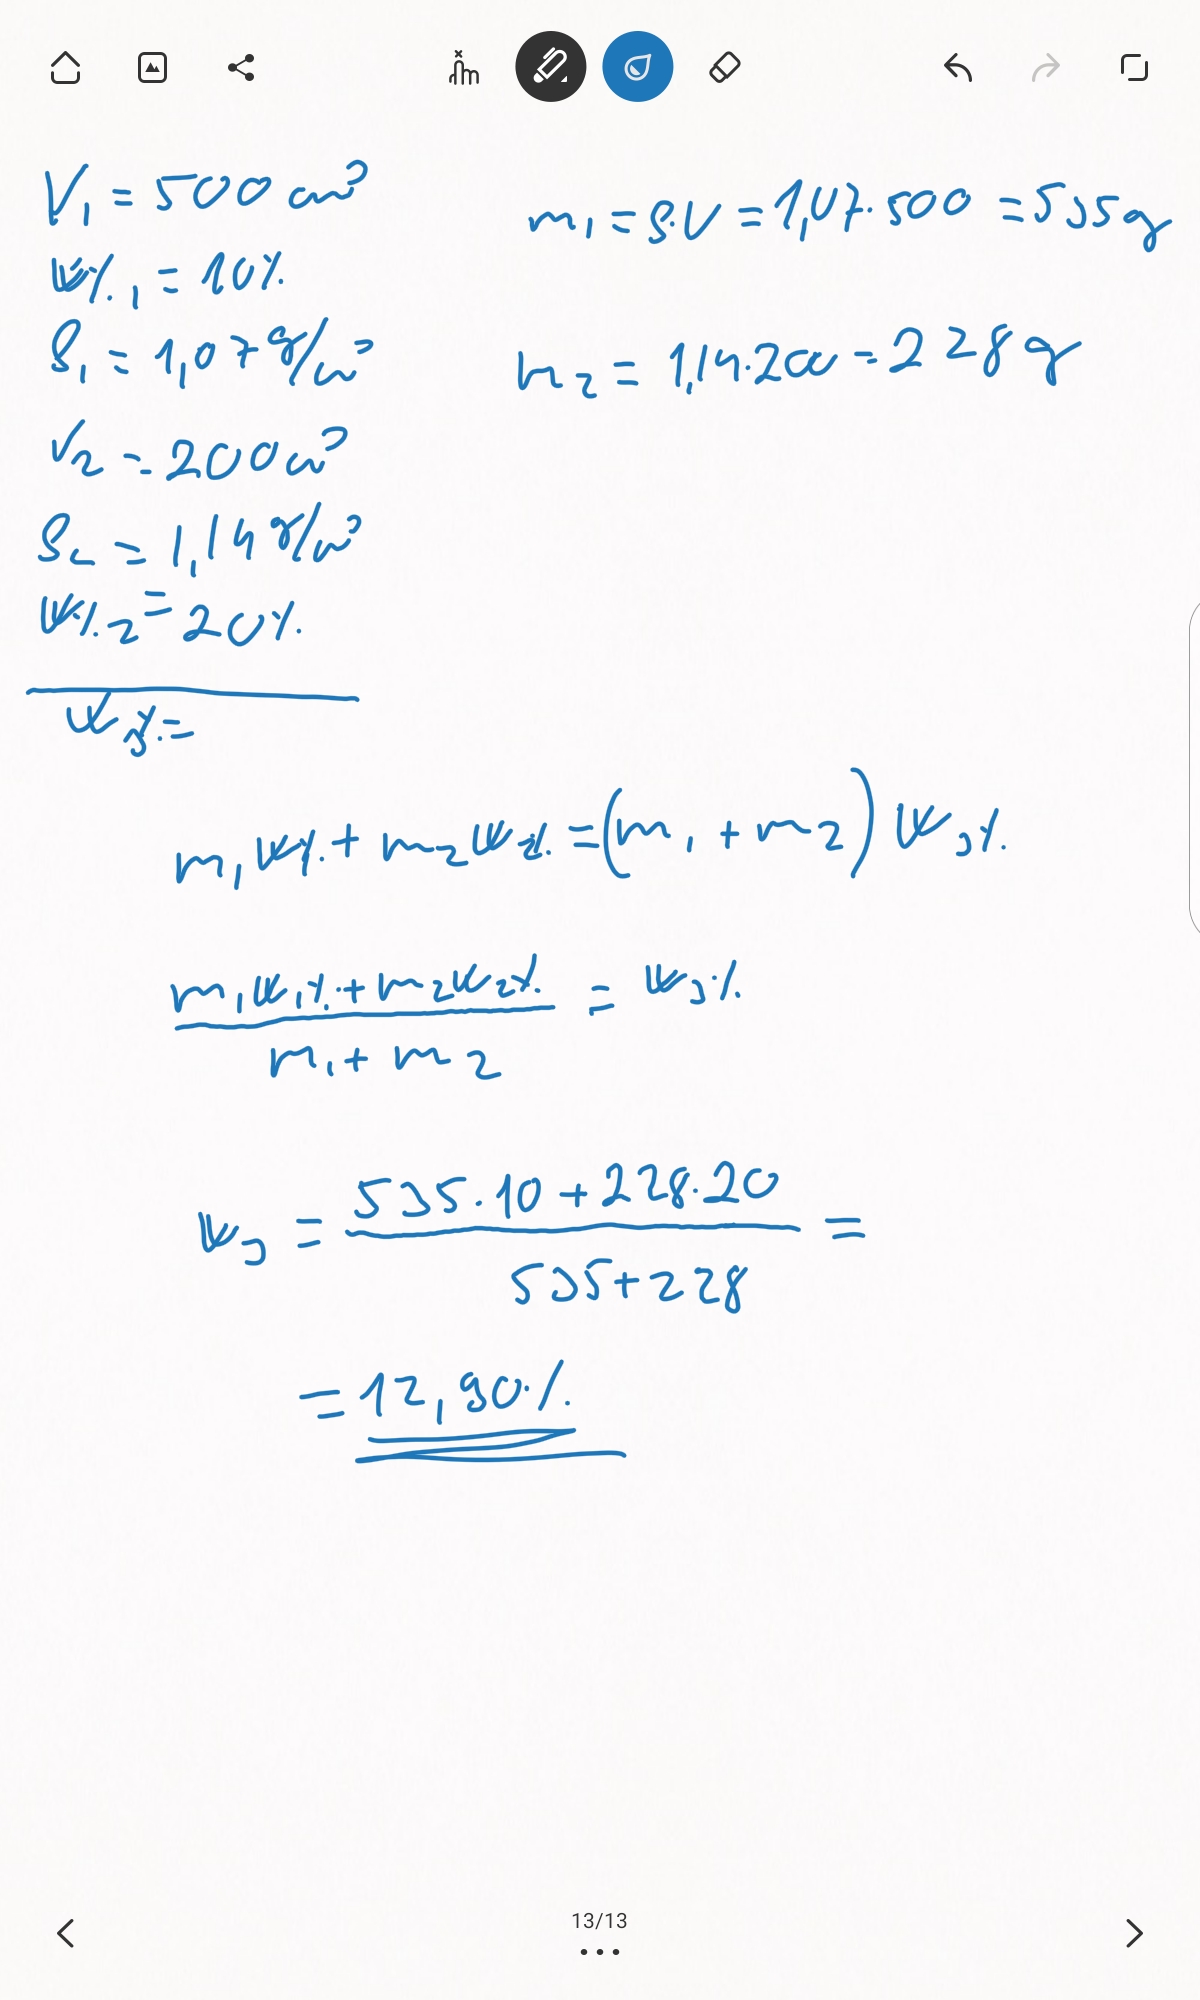 V₁ = 500 cm³
w%₁ = 10%
ρ₁ = 1,07 g/cm³
V₂ = 200 cm³
ρ₂ = 1,14 g/cm³
w%₂ = 20%
w₃% =
m₁ = ρ·V = 1,07·500 = 535 g
m₂ = 1,14·200 = 228 g
m₁w% + m₂w₂% = (m₁ + m₂) w₃%
m₁w₁% + m₂w₂% = w₃%
m₁ + m₂
w₃ = 535·10 + 228·20 =
535 + 228
= 12,90%
13/13